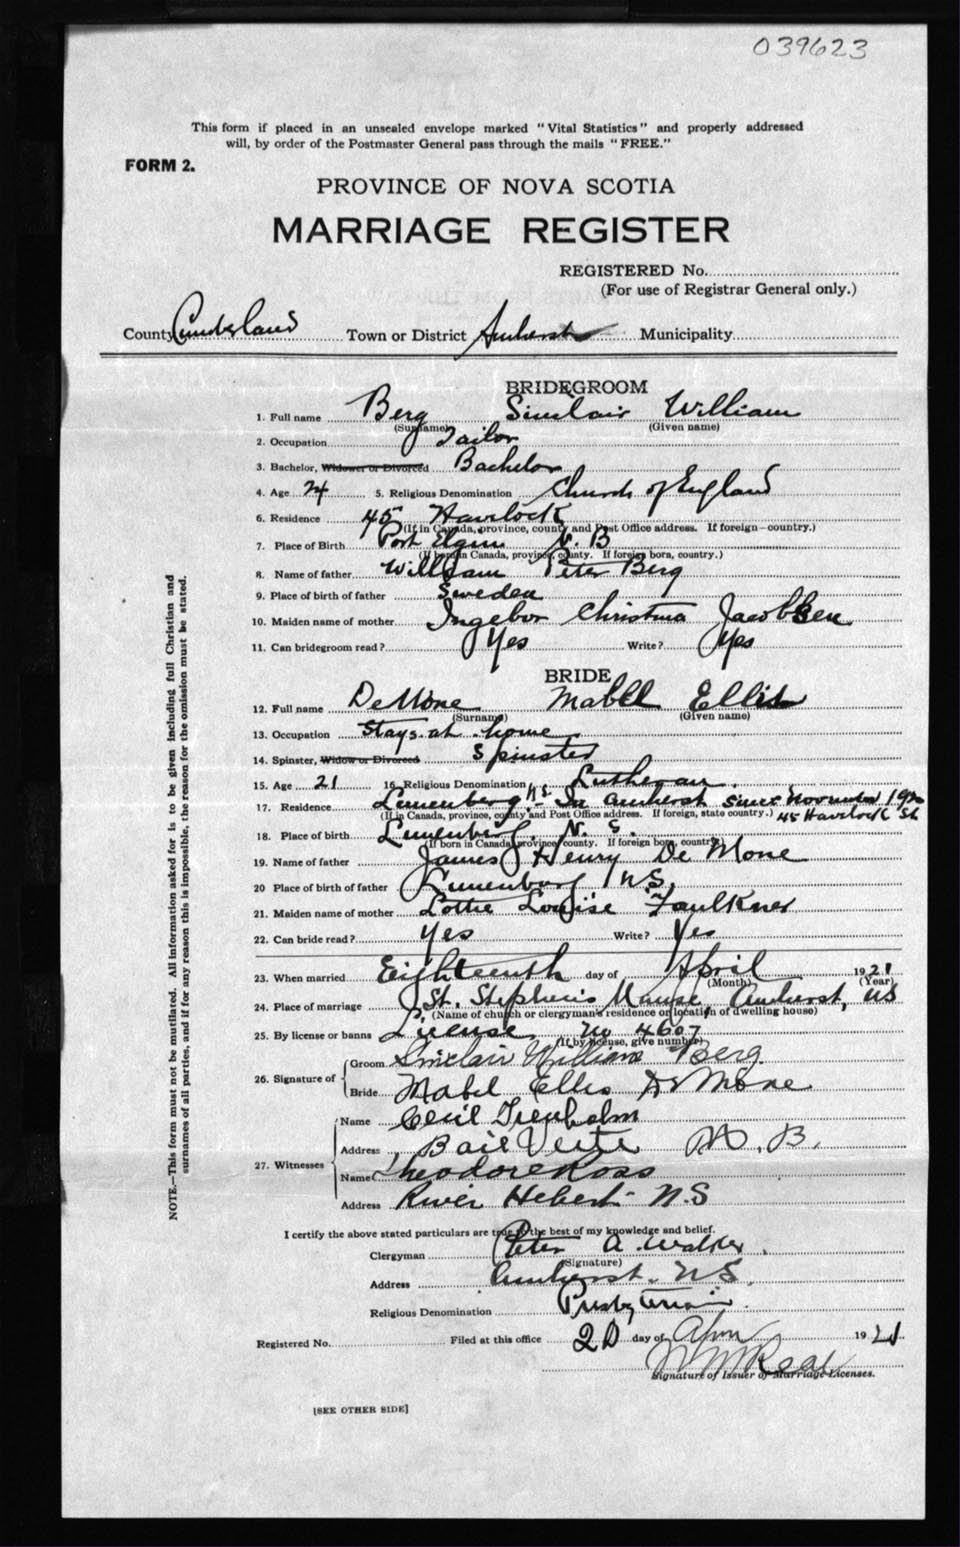 039623
This form if placed in an unsealed envelope marked "Vital Statistics" and properly addressed
will, by order of the Postmaster General pass through the mails "FREE."
FORM 2.
PROVINCE OF NOVA SCOTIA
MARRIAGE REGISTER
REGISTERED No.
(For use of Registrar General only.)
County Cumberland Town or District Amherst Municipality
BRIDEGROOM
1. Full name Berg Sinclair William
(Surname) (Given name)
2. Occupation Tailor
3. Bachelor, Widower or Divorced Bachelor
4. Age 24 5. Religious Denomination Church of England
6. Residence 45 Havelock
(If in Canada, province, county and Post Office address. If foreign—country.)
7. Place of Birth Port Elgin N. B
(If born in Canada, province, county. If foreign born, country.)
8. Name of father William Peter Berg
9. Place of birth of father Sweden
10. Maiden name of mother Ingebor Christina Jacobsen
11. Can bridegroom read? Yes Write? Yes
BRIDE
12. Full name DeMone Mabel Ellis
(Surname) (Given name)
13. Occupation Stays at home
14. Spinster, Widow or Divorced Spinster
15. Age 21 16. Religious Denomination Lutheran
17. Residence Lunenberg N.S. - In Amherst since November 1920
(If in Canada, province, county and Post Office address. If foreign, state country.) 45 Havelock St
18. Place of birth Lunenburg. N. S.
(If born in Canada province county. If foreign born, country.)
19. Name of father James Henry De Mone
20 Place of birth of father Lunenburg NS.
21. Maiden name of mother Lottie Louise Faulkner
22. Can bride read? Yes Write? Yes
23. When married Eighteenth day of April 1921
(Month) (Year)
24. Place of marriage St. Stephen's Manse Amherst, NS
(Name of church or clergyman's residence or location of dwelling house)
25. By license or banns License No 4607
(If by license, give number)
26. Signature of Groom Sinclair William Berg
Bride Mabel Ellis De Mone
27. Witnesses Name Cecil Trenholm
Address Baie Verte N. B.
Name Theodore Ross
Address River Hebert - N.S
I certify the above stated particulars are true to the best of my knowledge and belief.
Clergyman Peter A. Walker
(Signature)
Address Amherst. N.S.
Religious Denomination Presbyterian
Registered No. Filed at this office 20 day of Apr 1921
Signature of Issuer of Marriage Licenses.
[SEE OTHER SIDE]
NOTE.—This form must not be mutilated. All information asked for is to be given including full Christian and
surnames of all parties, and if for any reason this is impossible, the reason for the omission must be stated.